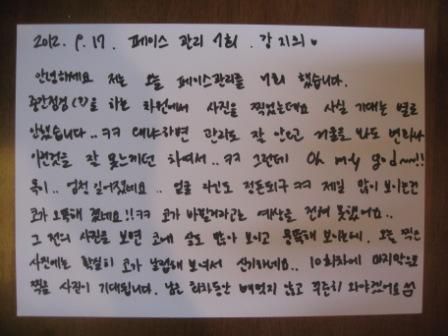 2012. 9. 17. 페이스 관리 7회. 강지희
안녕하세요 저는 오늘 페이스관리를 7회 했습니다.
중간점검(?)을 하는 차원에서 사진을 찍었는데요 사실 기대는 별로
안했습니다.. ㅋㅋ 왜냐하면 관리도 잘 안하고 거울로 봐도 변화나
이런것을 잘 못느끼던 하여서.. ㅋㅋ 그런데 Oh my god~~!!
목이.. 엄청 길어졌네요.. 얼굴 라인도 정돈되구 ㅋㅋ 제일 많이 보이는건
코가 오똑해 졌네요!!ㅋㅋ 코가 바뀔거라고는 예상을 전혀 못했어요..
그 전의 사진을 보면 코에 살도 많아 보이고 뭉뚝해 보이는데. 오늘 찍은
사진에는 확실히 코가 날렵해 보여서 신기하네요.. 10회차에 마지막으로
찍을 사진이 기대됩니다. 남은 회차동안 빼먹지 않고 꾸준히 와야겠어요